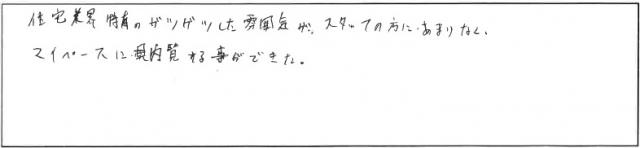 住宅業界特有のガツガツした雰囲気が、スタッフの方にあまりなく、
マイペースに内覧する事ができた。